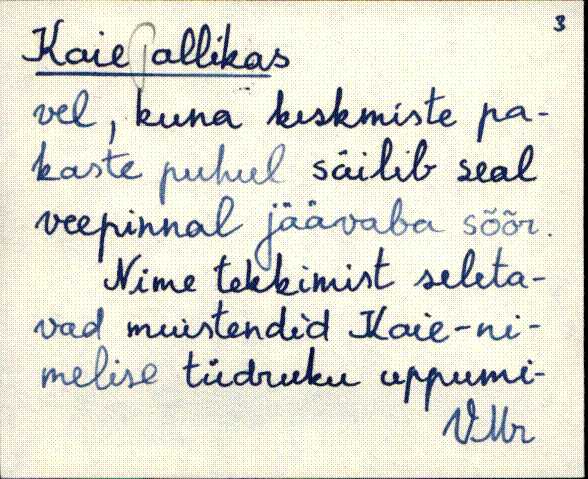 3
Kaie allikas
vel, kuna keskmiste pa-
kaste puhul säilib seal
veepinnal jäävaba sõõr.
Nime tekkimist seleta-
vad muistendid Kaie-ni-
melise tüdruku uppumi-
VMr